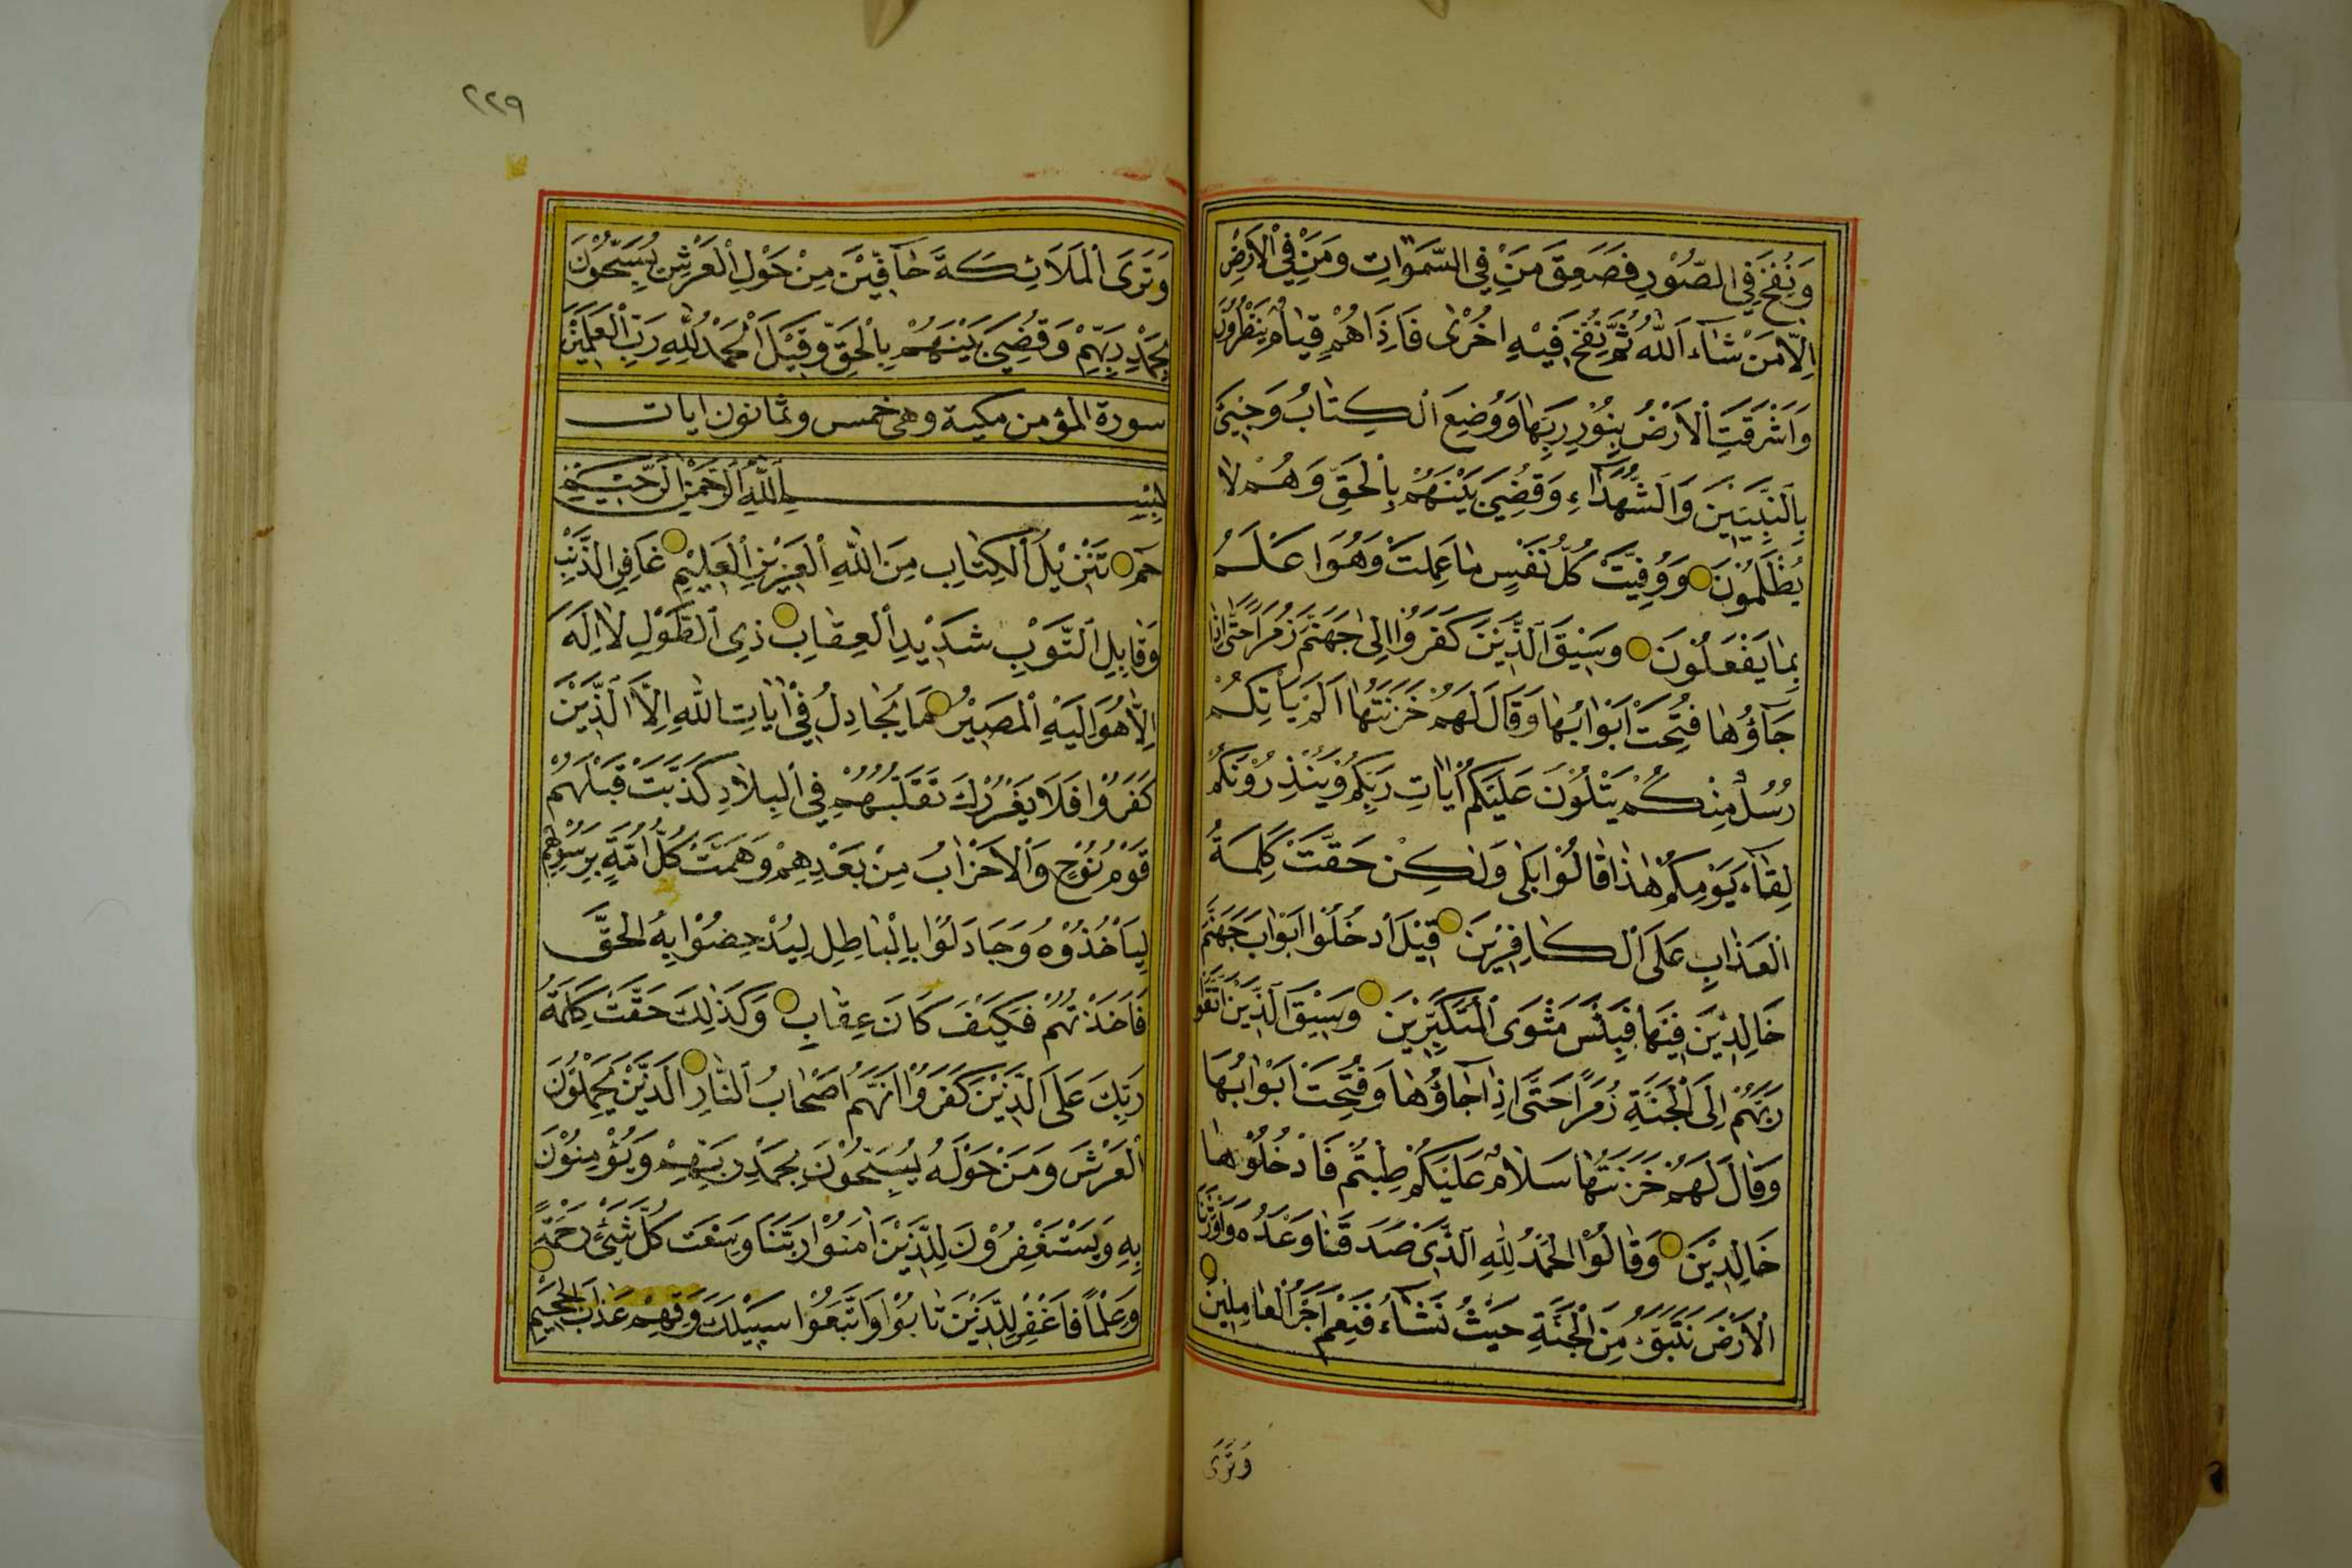 وَنُفِخَ فِي الصُّوْرِ فَصَعِقَ مَنْ فِي السَّمٰوَاتِ وَمَنْ فِي الْاَرْضِ
اِلَّا مَنْ شَآءَ اللّٰهُ ثُمَّ نُفِخَ فِيْهِ اُخْرٰى فَاِذَا هُمْ قِيَامٌ يَنْظُرُوْنَ
وَاَشْرَقَتِ الْاَرْضُ بِنُوْرِ رَبِّهَا وَوُضِعَ الْكِتَابُ وَجِيْئَ
بِالنَّبِيّٖنَ وَالشُّهَدَآءِ وَقُضِيَ بَيْنَهُمْ بِالْحَقِّ وَهُمْ لَا
يُظْلَمُوْنَ وَوُفِّيَتْ كُلُّ نَفْسٍ مَا عَمِلَتْ وَهُوَ اَعْلَمُ
بِمَا يَفْعَلُوْنَ وَسِيْقَ الَّذِيْنَ كَفَرُوْا اِلٰى جَهَنَّمَ زُمَرًا حَتّٰى اِذَا
جَآؤُهَا فُتِحَتْ اَبْوَابُهَا وَقَالَ لَهُمْ خَزَنَتُهَا اَلَمْ يَاْتِكُمْ
رُسُلٌ مِنْكُمْ يَتْلُوْنَ عَلَيْكُمْ اٰيَاتِ رَبِّكُمْ وَيُنْذِرُوْنَكُمْ
لِقَآءَ يَوْمِكُمْ هٰذَا قَالُوْا بَلٰى وَلٰكِنْ حَقَّتْ كَلِمَةُ
الْعَذَابِ عَلَى الْكَافِرِيْنَ قِيْلَ ادْخُلُوْا اَبْوَابَ جَهَنَّمَ
خَالِدِيْنَ فِيْهَا فَبِئْسَ مَثْوَى الْمُتَكَبِّرِيْنَ وَسِيْقَ الَّذِيْنَ اتَّقَوْا
رَبَّهُمْ اِلَى الْجَنَّةِ زُمَرًا حَتّٰى اِذَا جَآؤُهَا وَفُتِحَتْ اَبْوَابُهَا
وَقَالَ لَهُمْ خَزَنَتُهَا سَلَامٌ عَلَيْكُمْ طِبْتُمْ فَادْخُلُوْهَا
خَالِدِيْنَ وَقَالُوْا الْحَمْدُ لِلّٰهِ الَّذِيْ صَدَقَنَا وَعْدَهُ وَاَوْرَثَنَا
الْاَرْضَ نَتَبَوَّءُ مِنَ الْجَنَّةِ حَيْثُ نَشَآءُ فَنِعْمَ اَجْرُ الْعَامِلِيْنَ
وَتَرَى
٢٢٩
وَتَرَى الْمَلَائِكَةَ حَآفِّيْنَ مِنْ حَوْلِ الْعَرْشِ يُسَبِّحُوْنَ
بِحَمْدِ رَبِّهِمْ وَقُضِيَ بَيْنَهُمْ بِالْحَقِّ وَقِيْلَ الْحَمْدُ لِلّٰهِ رَبِّ الْعٰلَمِيْنَ
سورة المؤمن مكية وهى خمس وثمانون ايات
بِسْمِ اللّٰهِ الرَّحْمٰنِ الرَّحِيْمِ
حٰمٓ تَنْزِيْلُ الْكِتَابِ مِنَ اللّٰهِ الْعَزِيْزِ الْعَلِيْمِ غَافِرِ الذَّنْبِ
وَقَابِلِ التَّوْبِ شَدِيْدِ الْعِقَابِ ذِي الطَّوْلِ لَا اِلٰهَ
اِلَّا هُوَ اِلَيْهِ الْمَصِيْرُ مَا يُجَادِلُ فِيْ اٰيَاتِ اللّٰهِ اِلَّا الَّذِيْنَ
كَفَرُوْا فَلَا يَغْرُرْكَ تَقَلُّبُهُمْ فِي الْبِلَادِ كَذَّبَتْ قَبْلَهُمْ
قَوْمُ نُوْحٍ وَالْاَحْزَابُ مِنْ بَعْدِهِمْ وَهَمَّتْ كُلُّ اُمَّةٍ بِرَسُوْلِهِمْ
لِيَاْخُذُوْهُ وَجَادَلُوْا بِالْبَاطِلِ لِيُدْحِضُوْا بِهِ الْحَقَّ
فَاَخَذْتُهُمْ فَكَيْفَ كَانَ عِقَابِ وَكَذٰلِكَ حَقَّتْ كَلِمَةُ
رَبِّكَ عَلَى الَّذِيْنَ كَفَرُوْا اَنَّهُمْ اَصْحَابُ النَّارِ الَّذِيْنَ يَحْمِلُوْنَ
الْعَرْشَ وَمَنْ حَوْلَهُ يُسَبِّحُوْنَ بِحَمْدِ رَبِّهِمْ وَيُؤْمِنُوْنَ
بِهِ وَيَسْتَغْفِرُوْنَ لِلَّذِيْنَ اٰمَنُوْا رَبَّنَا وَسِعْتَ كُلَّ شَيْئٍ رَحْمَةً
وَعِلْمًا فَاغْفِرْ لِلَّذِيْنَ تَابُوْا وَاتَّبَعُوْا سَبِيْلَكَ وَقِهِمْ عَذَابَ الْجَحِيْمِ